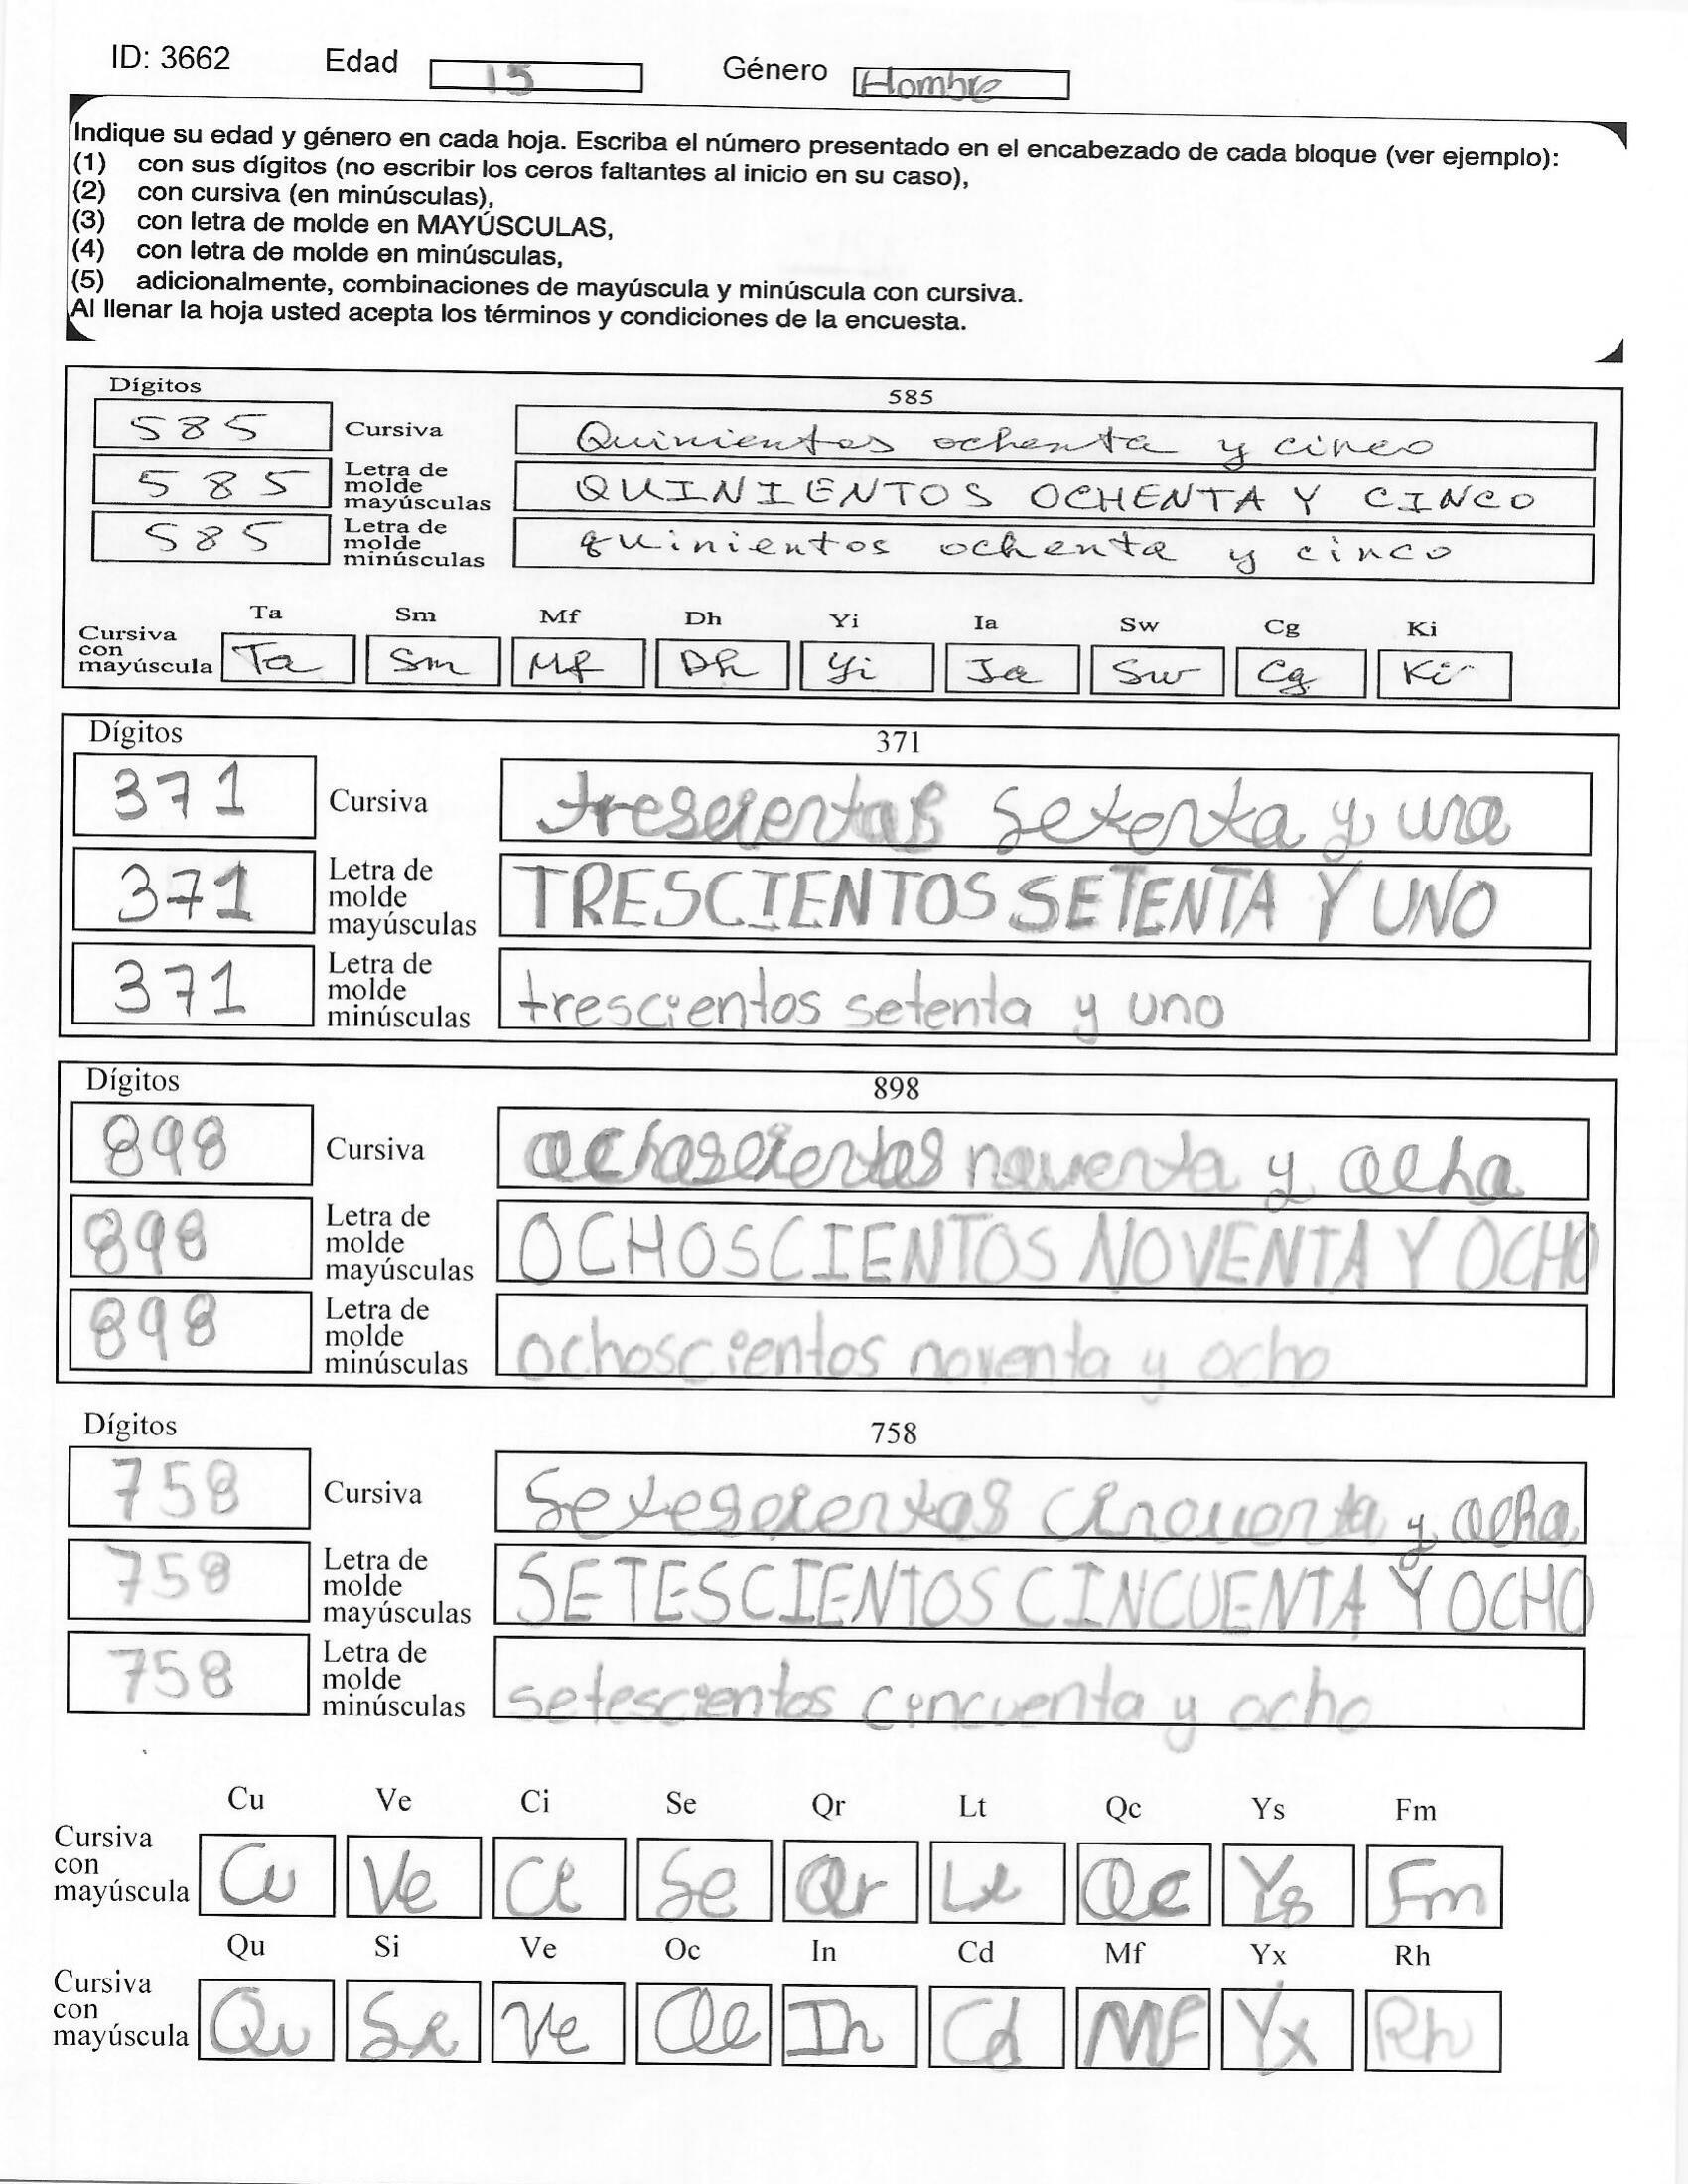 ID: 3662 Edad 15 Género Hombre
Indique su edad y género en cada hoja. Escriba el número presentado en el encabezado de cada bloque (ver ejemplo):
(1) con sus dígitos (no escribir los ceros faltantes al inicio en su caso),
(2) con cursiva (en minúsculas),
(3) con letra de molde en MAYÚSCULAS,
(4) con letra de molde en minúsculas,
(5) adicionalmente, combinaciones de mayúscula y minúscula con cursiva.
Al llenar la hoja usted acepta los términos y condiciones de la encuesta.
Dígitos 585
585 Cursiva Quinientos ochenta y cinco
585 Letra de molde mayúsculas QUINIENTOS OCHENTA Y CINCO
585 Letra de molde minúsculas quinientos ochenta y cinco
Ta Sm Mf Dh Yi Ia Sw Cg Ki
Cursiva con mayúscula Ta Sm Mf Dh Yi Ia Sw Cg Ki
Dígitos 371
371 Cursiva trescientos setenta y uno
371 Letra de molde mayúsculas TRESCIENTOS SETENTA Y UNO
371 Letra de molde minúsculas trescientos setenta y uno
Dígitos 898
898 Cursiva ochoscientos noventa y ocho
898 Letra de molde mayúsculas OCHOSCIENTOS NOVENTA Y OCHO
898 Letra de molde minúsculas ochoscientos noventa y ocho
Dígitos 758
758 Cursiva Setescientos cincuenta y ocho
758 Letra de molde mayúsculas SETESCIENTOS CINCUENTA Y OCHO
758 Letra de molde minúsculas setescientos cincuenta y ocho
Cu Ve Ci Se Qr Lt Qc Ys Fm
Cursiva con mayúscula Cu Ve Ci Se Qr Lt Qc Ys Fm
Qu Si Ve Oc In Cd Mf Yx Rh
Cursiva con mayúscula Qu Si Ve Oc In Cd Mf Yx Rh